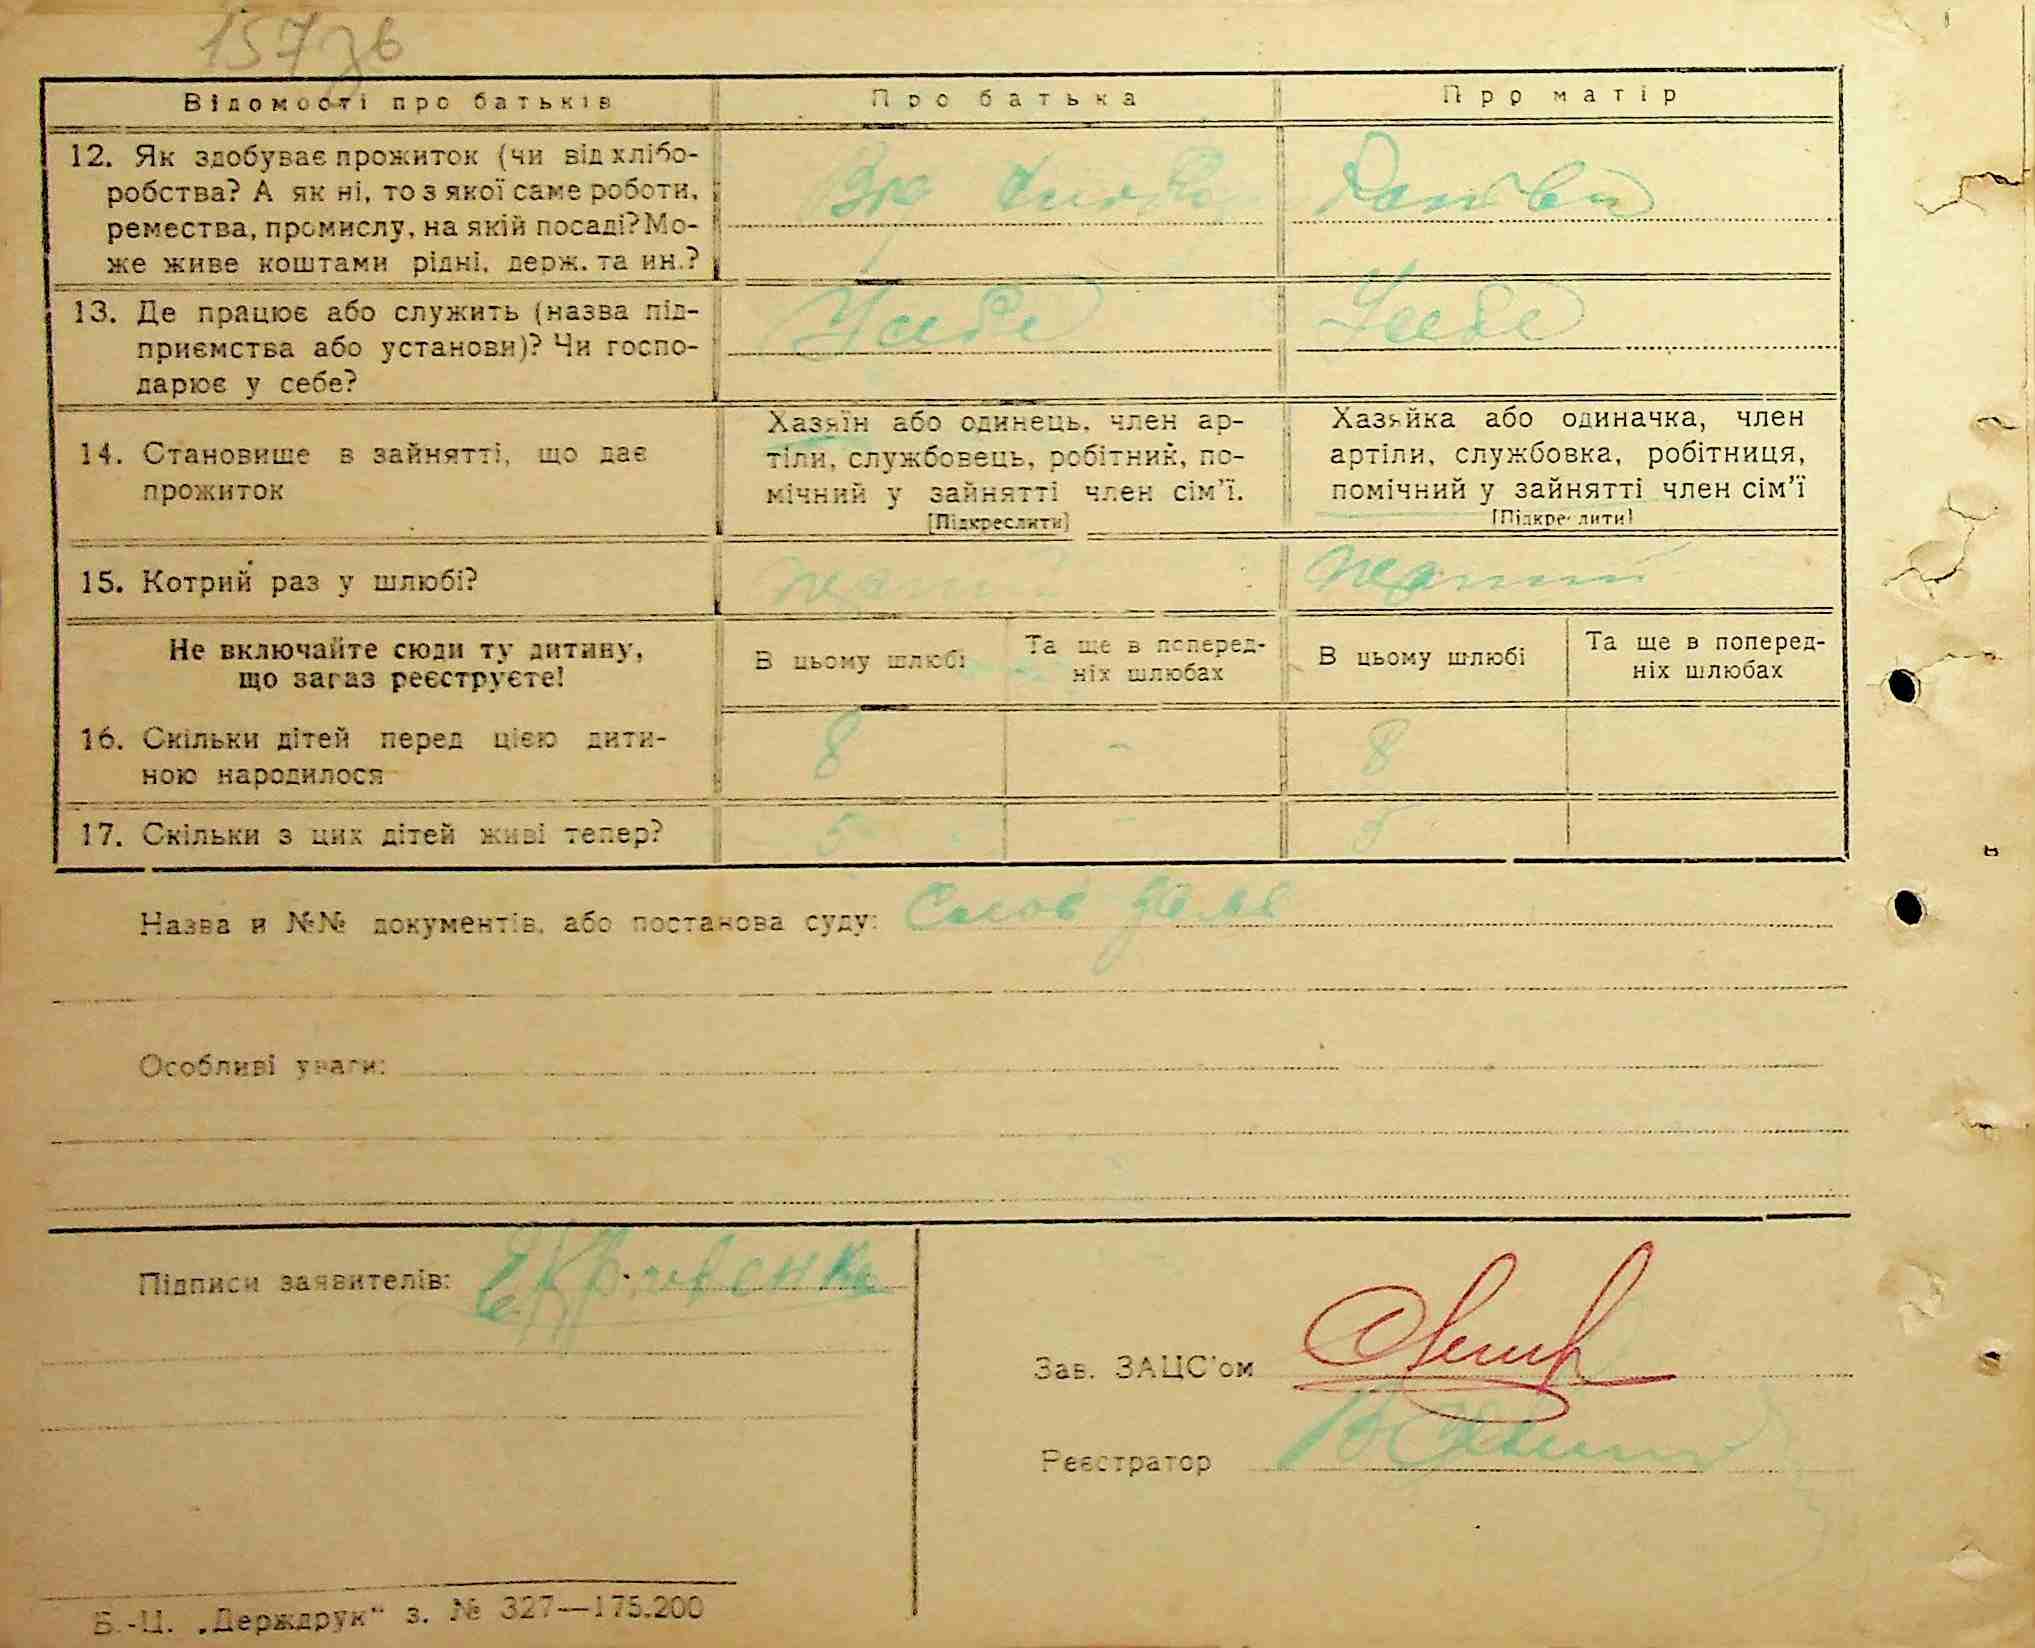 157 зв
Відомості про батьків
Про батька
Про матір
12. Як здобуває прожиток (чи від хлібо-
робства? А як ні, то з якої саме роботи,
ремества, промислу, на якій посаді? Мо-
же живе коштами рідні, держ. та ин.?
13. Де працює або служить (назва під-
приємства або установи)? Чи госпо-
дарює у себе?
У себе
У себе
14. Становище в зайнятті, що дає
прожиток
Хазяїн або одинець, член ар-
тіли, службовець, робітник, по-
мічний у зайнятті член сім'ї.
[Підкреслити]
Хазяйка або одиначка, член
артіли, службовка, робітниця,
помічний у зайнятті член сім'ї
[Підкреслити]
15. Котрий раз у шлюбі?
перший
перший
Не включайте сюди ту дитину,
що зараз реєструєте!
В цьому шлюбі
Та ще в поперед-
ніх шлюбах
В цьому шлюбі
Та ще в поперед-
ніх шлюбах
16. Скільки дітей перед цією дити-
ною народилося
8 - 8
17. Скільки з цих дітей живі тепер?
5 - 5
Назва и №№ документів, або постанова суду:
Особливі уваги:
Підписи заявителів:
Зав. ЗАЦС'ом
Реєстратор
Б.-Ц. „Держдрук" з. № 327—175.200